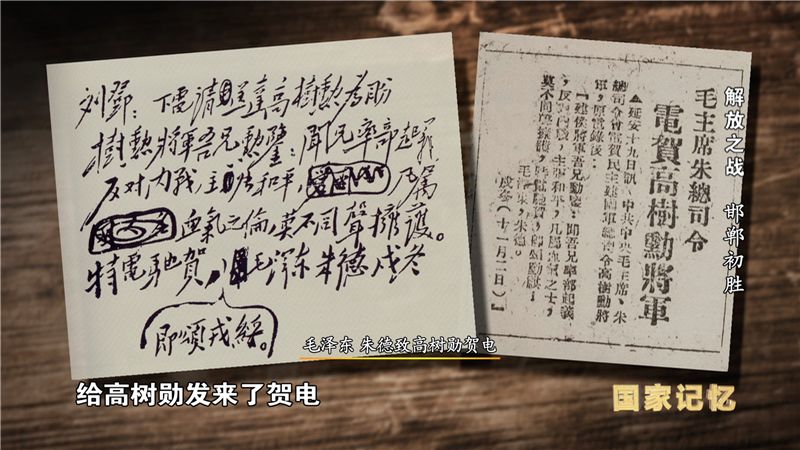 刘鄧：下電請送達高樹勳為盼
樹勳將軍吾兄勳鑒：聞兄率部起義
反对内戰，主張和平，凡屬
血氣之倫，莫不同聲擁護。
特電馳賀，毛泽东朱德戌冬
即頌戎綏。
毛主席朱總司令
電賀高樹勳將軍
▲延安十九日訊 中共中央毛主席、朱
總司令會電賀民主建國軍總司令高樹勳將
軍，原電錄後：
『建侯將軍吾兄勳鑒：聞吾兄率部起義
，反對內戰，主張和平，凡屬血氣之士，
莫不同聲擁護，特電馳賀，即頌勳祺！
毛澤東、朱德。
戌冬（十一月二日）』
解放之战 邯郸初胜
毛泽东 朱德致高树勋贺电
给高树勋发来了贺电
国家记忆